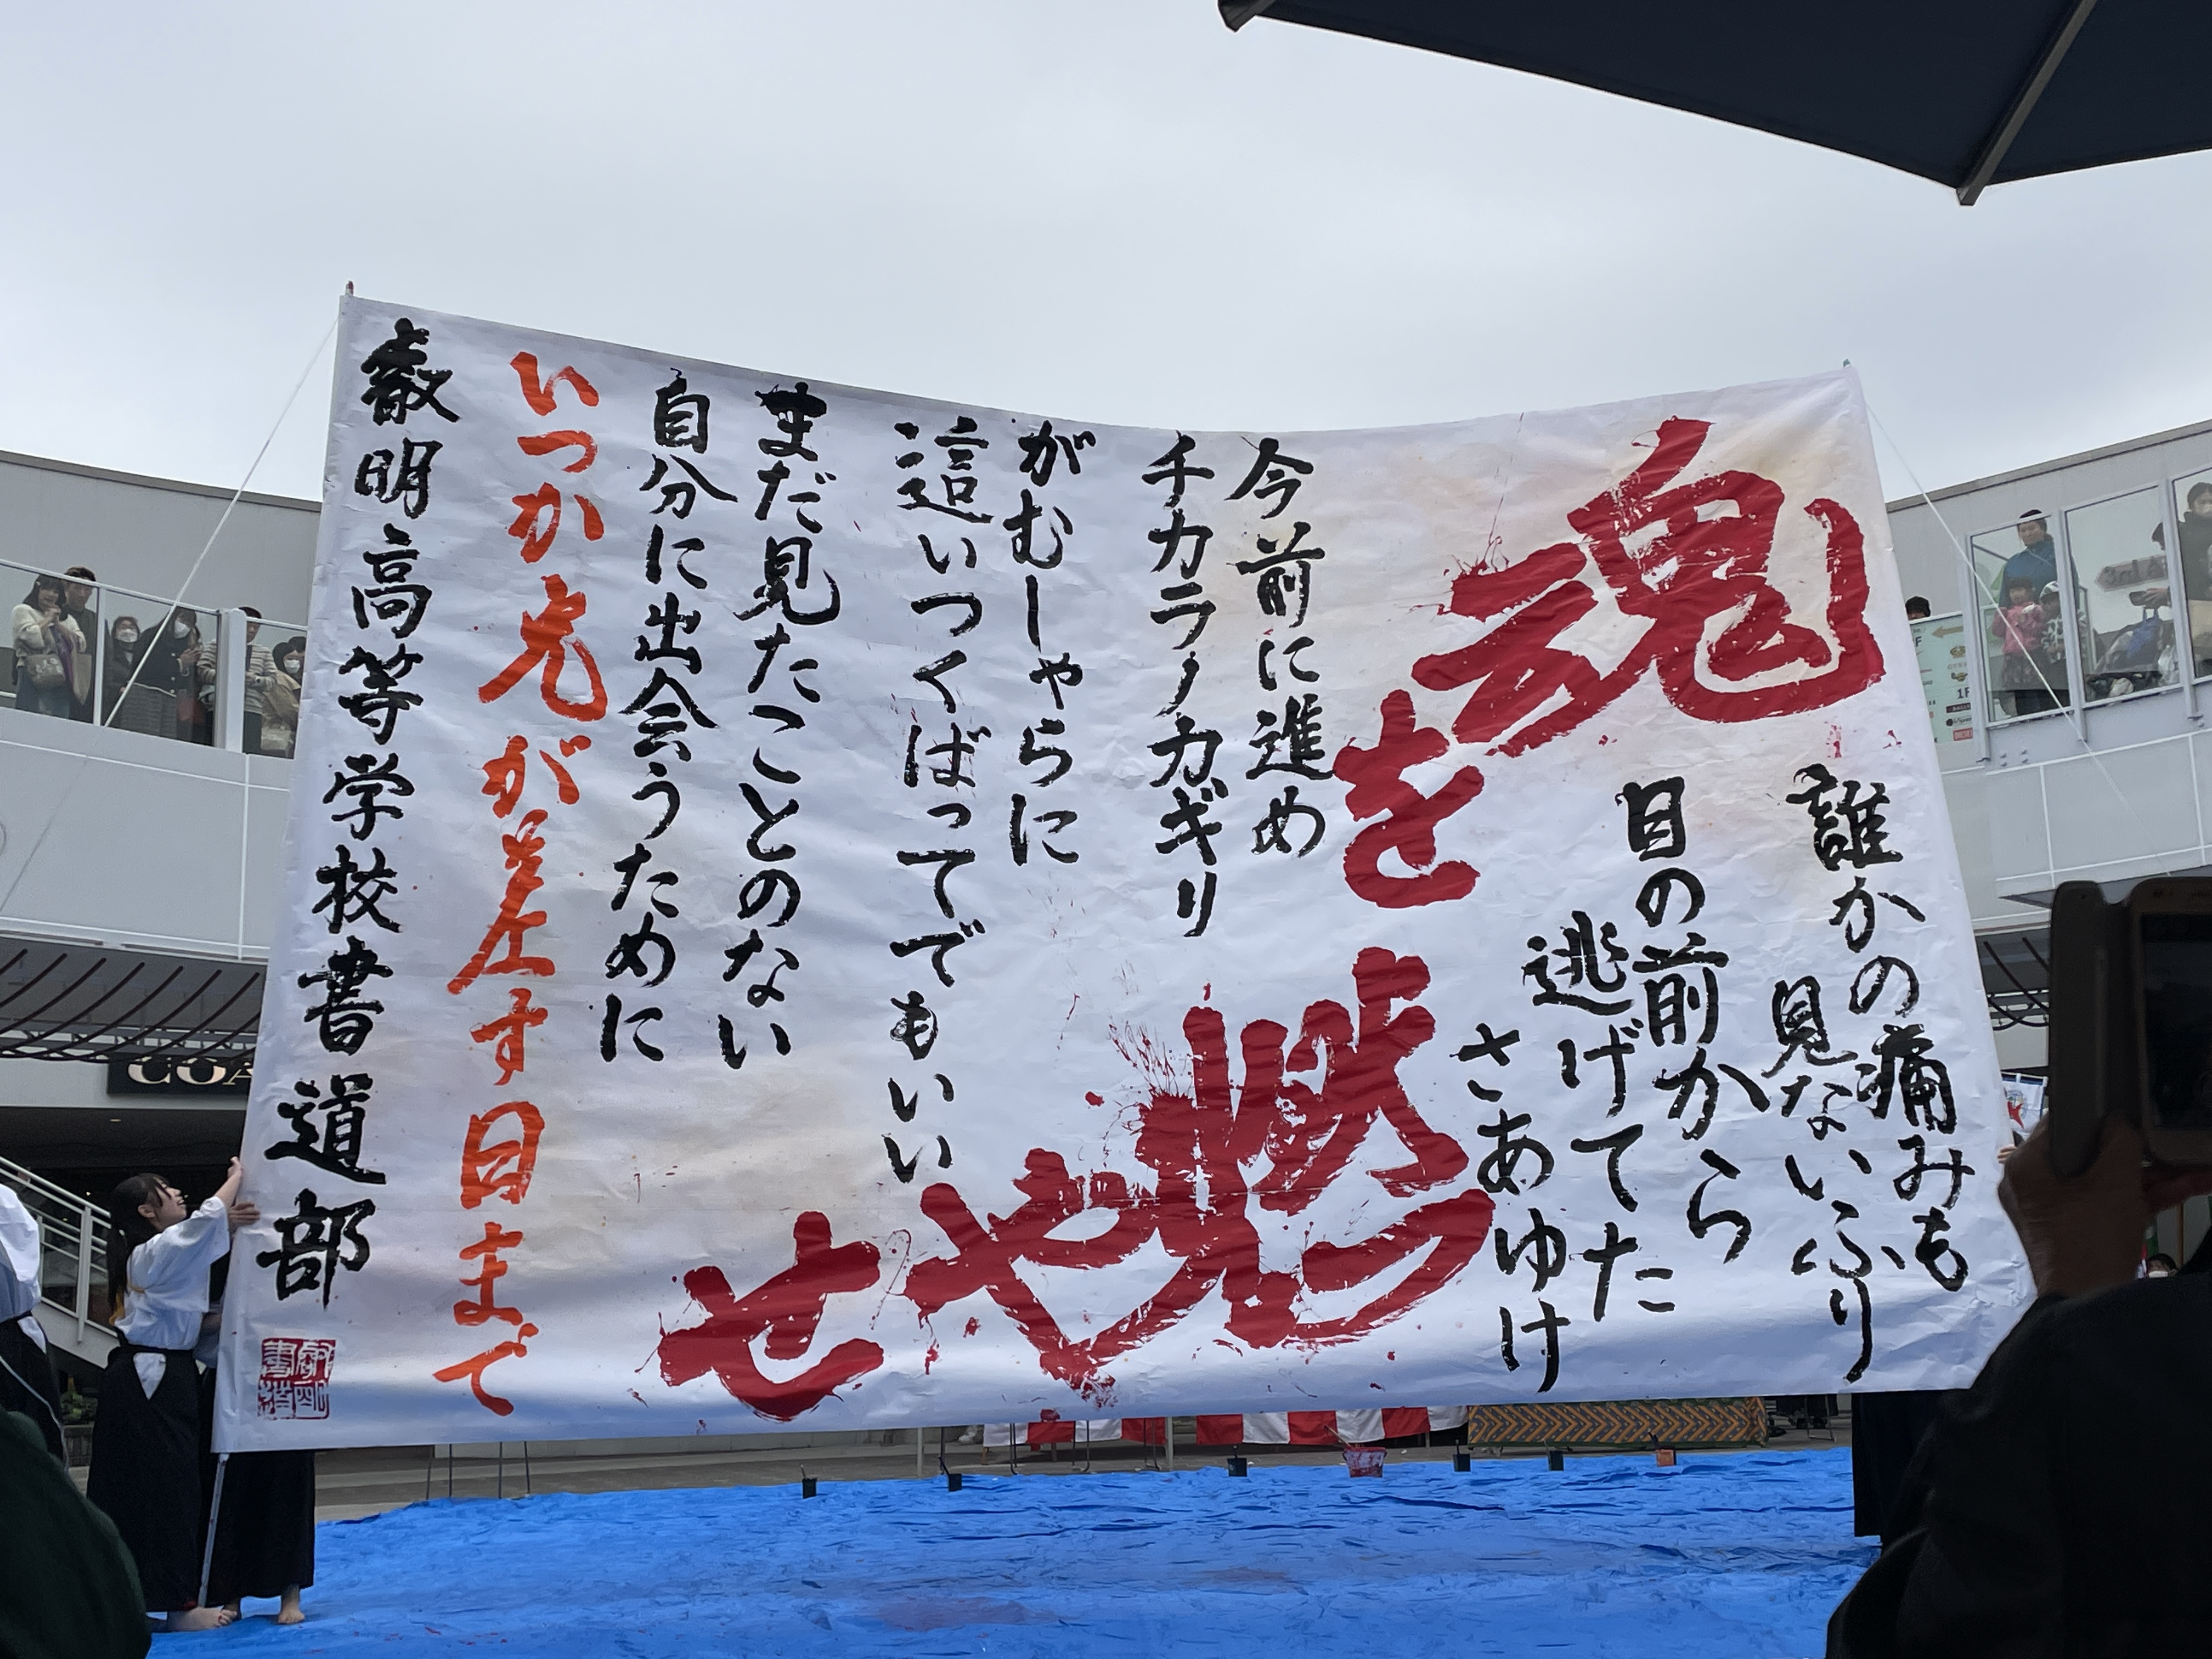 誰かの痛みも
見ないふり
目の前から
逃げてた
さあゆけ
魂を
燃やせ
今前に進め
チカラノカギリ
がむしゃらに
這いつくばってでもいい
まだ見たことのない
自分に出会うために
いつか光が差す日まで
叡明高等学校書道部
叡明書道
COA
1F